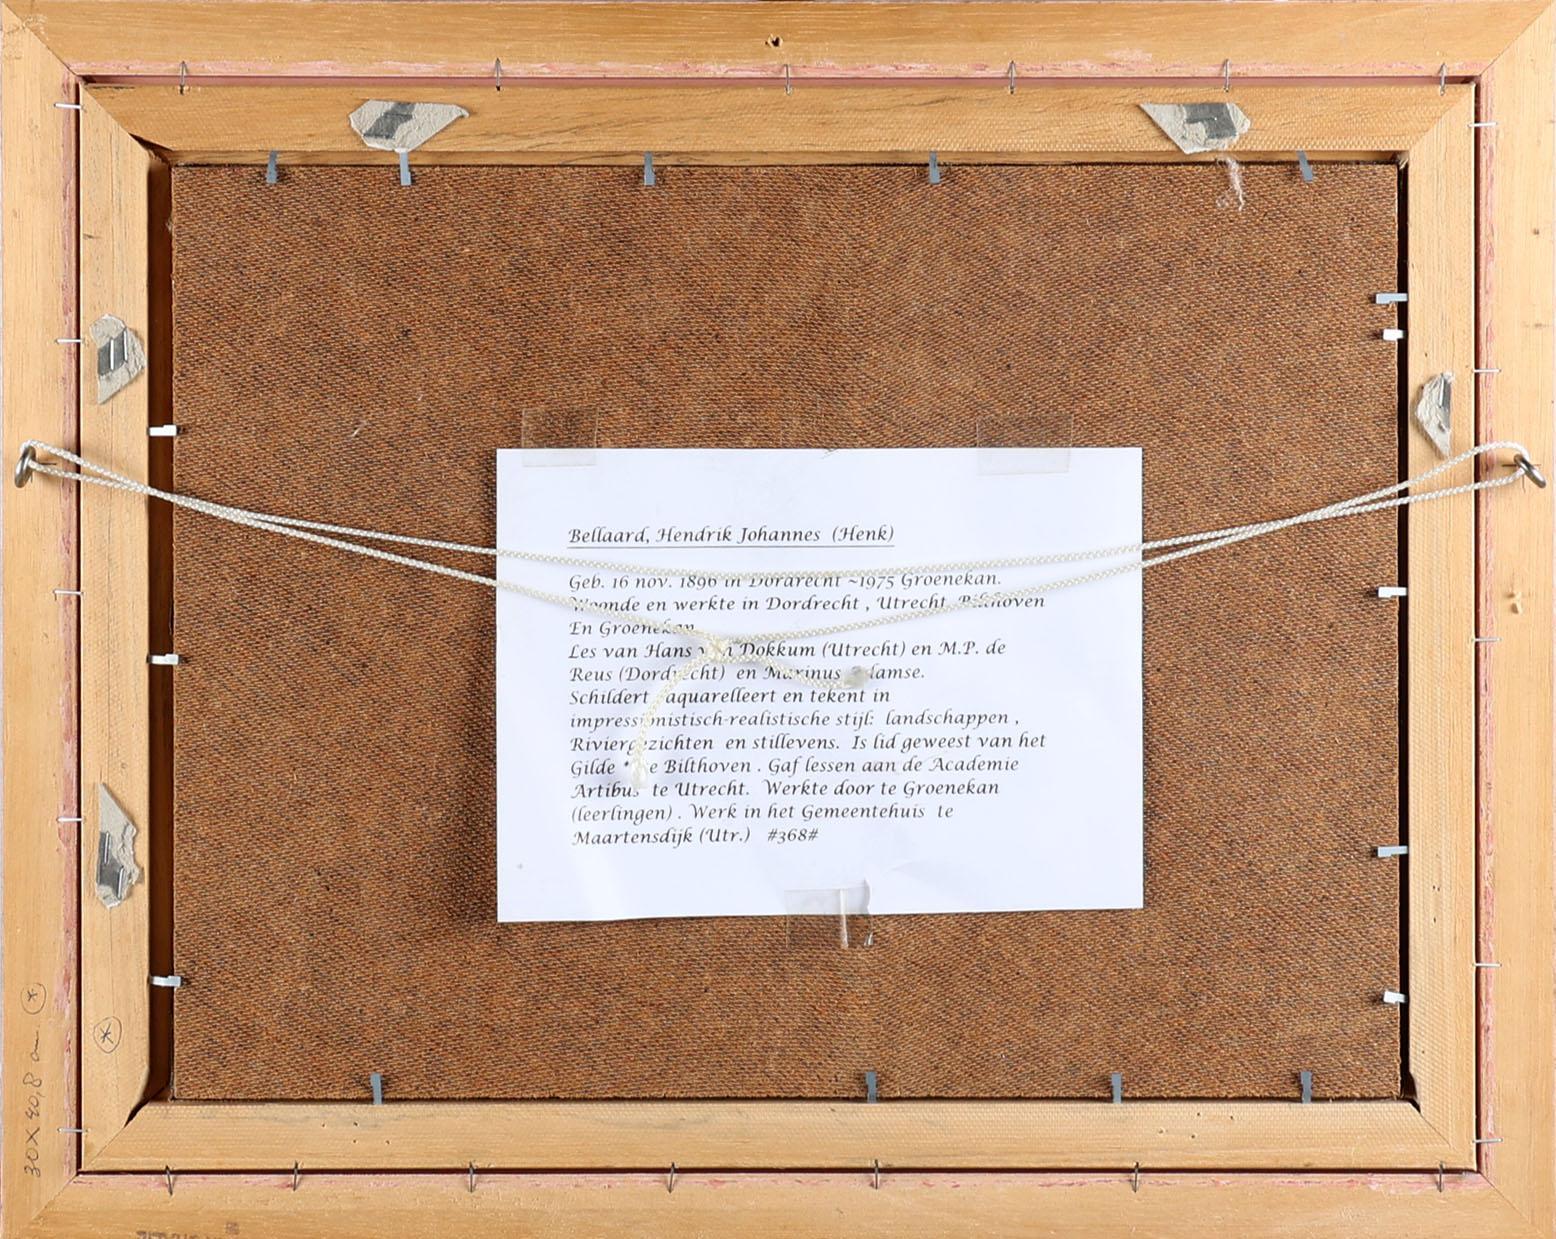 Bellaard, Hendrik Johannes (Henk)
Geb. 16 nov. 1896 in Dordrecht ~1975 Groenekan.
Woonde en werkte in Dordrecht , Utrecht, Bilthoven
En Groenekan
Les van Hans van Dokkum (Utrecht) en M.P. de
Reus (Dordrecht) en Marinus
Schildert aquarelleert en tekent in
impressionistisch-realistische stijl: landschappen ,
Riviergezichten en stillevens. Is lid geweest van het
Gilde Bilthoven . Gaf lessen aan de Academie
Artibus te Utrecht. Werkte door te Groenekan
(leerlingen) . Werk in het Gemeentehuis te
Maartensdijk (Utr.) #368#
30 X 40,8 cm.